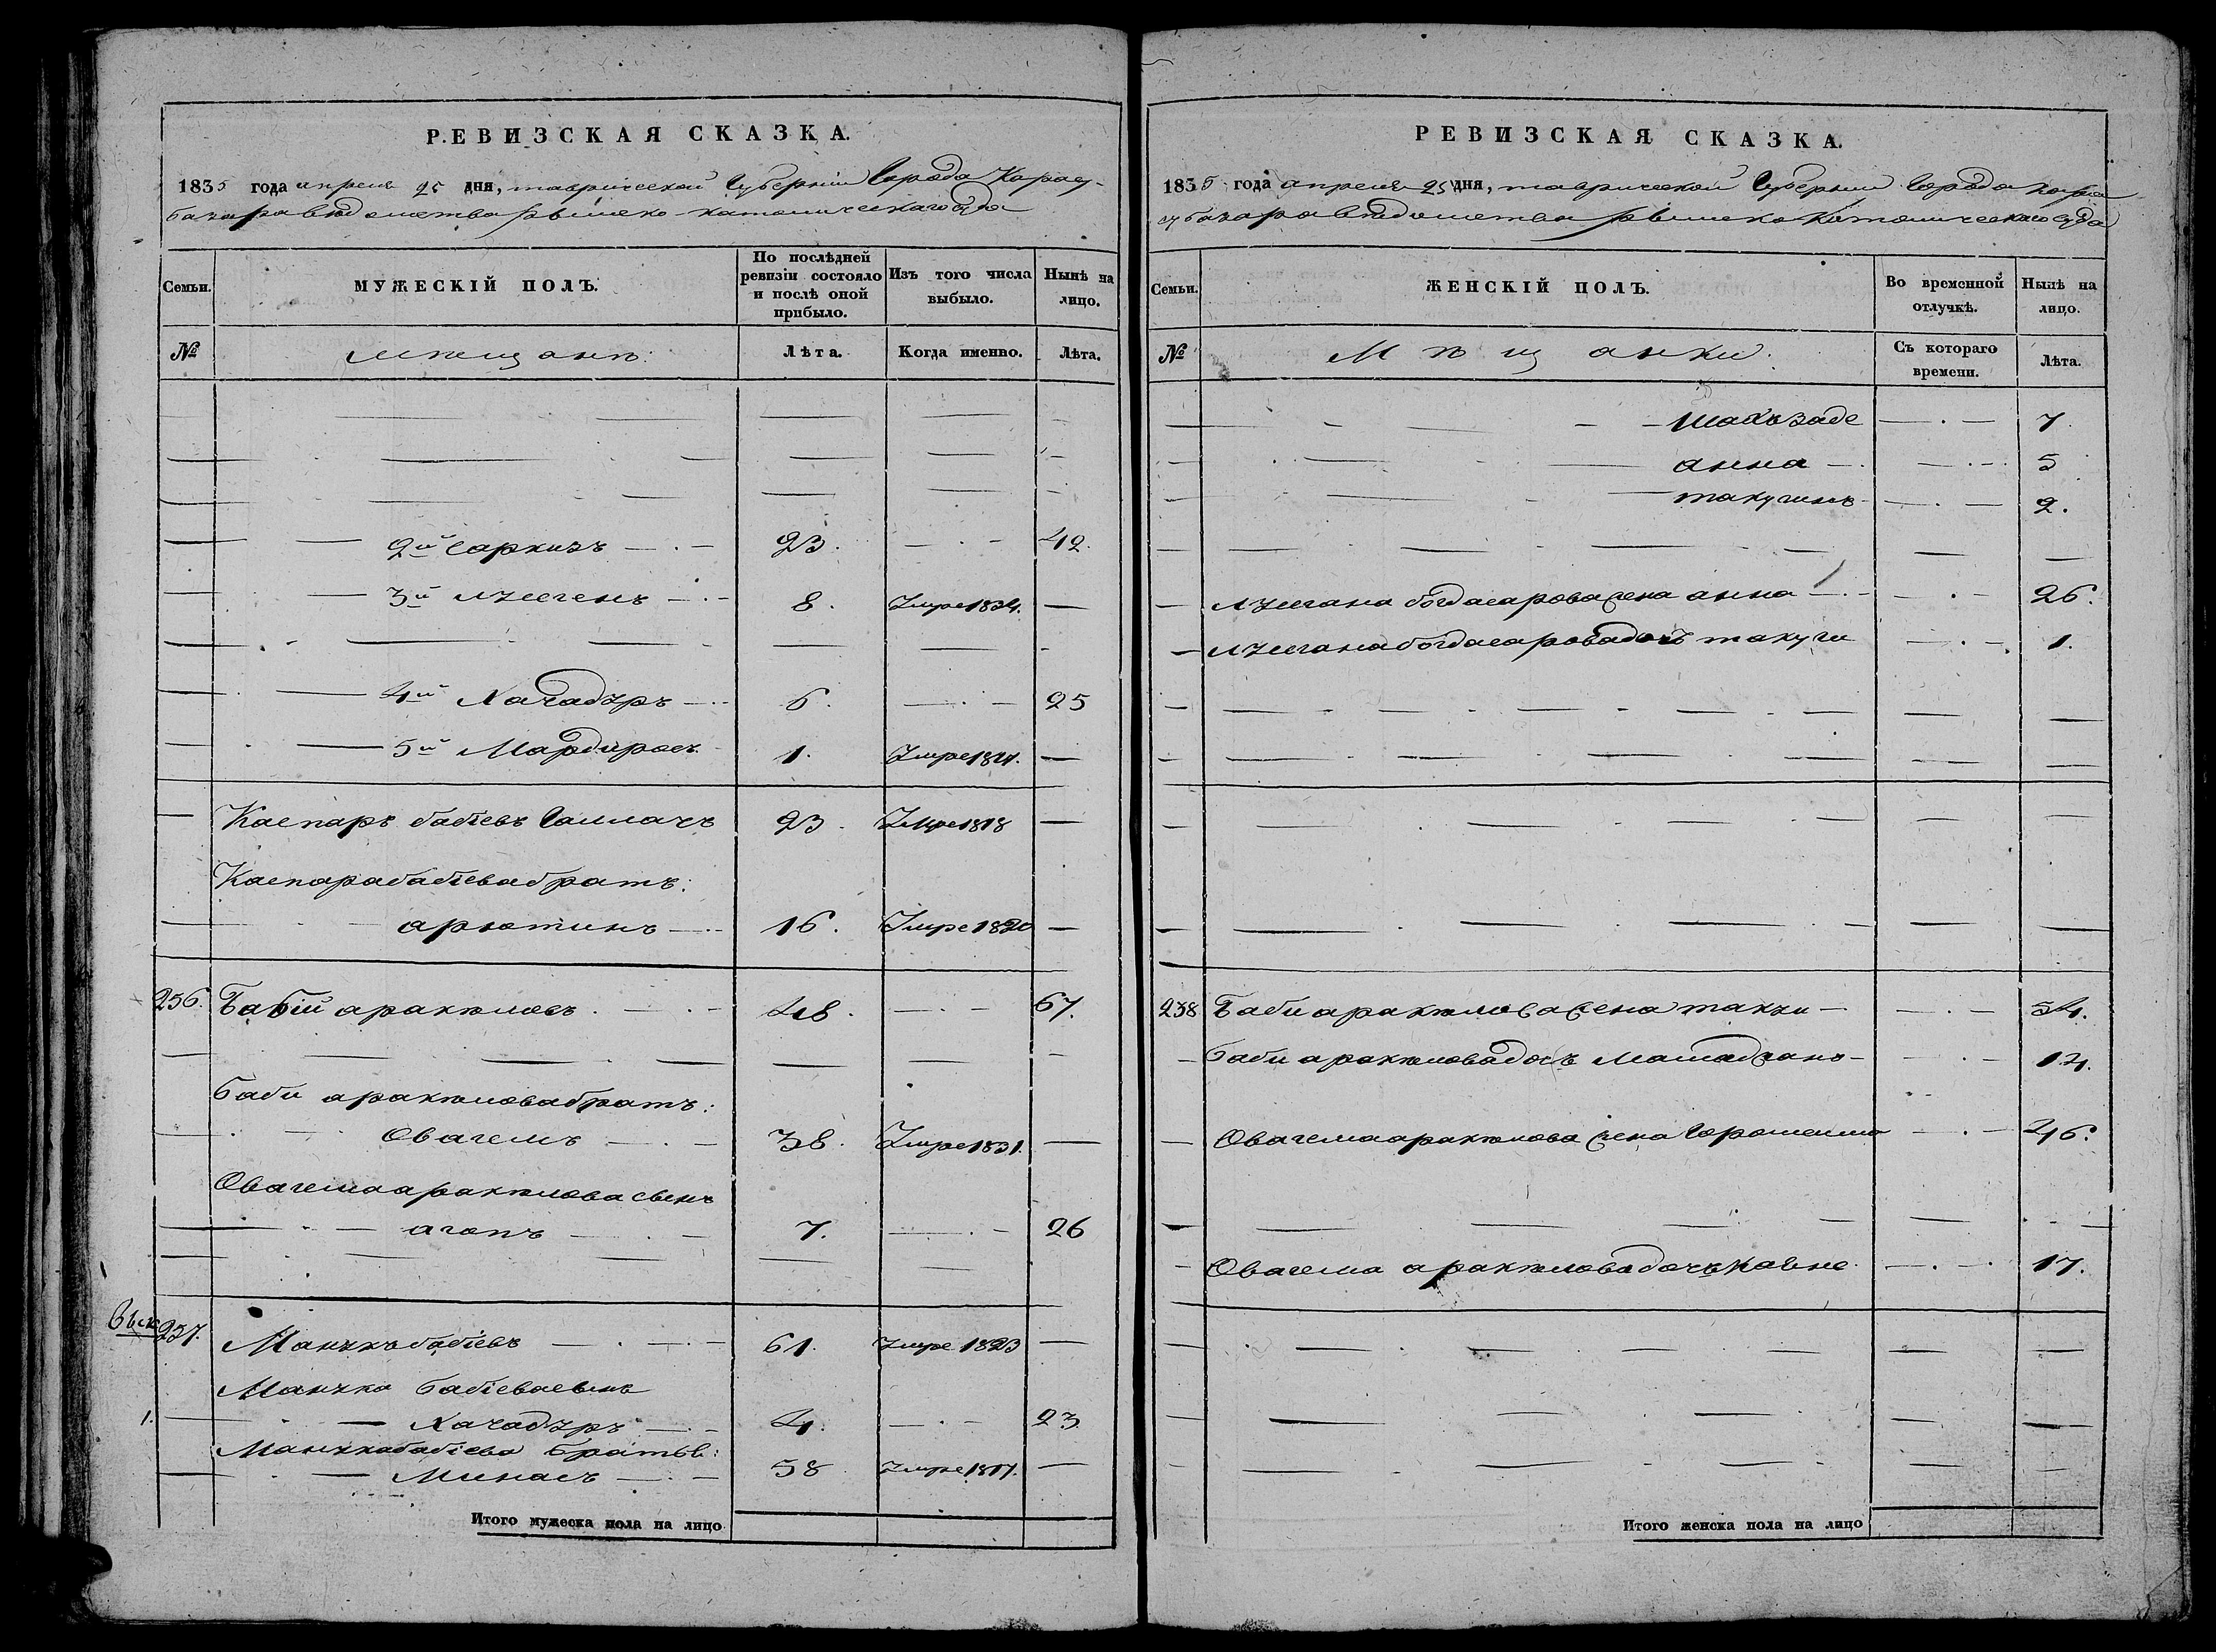 РЕВИЗСКАЯ СКАЗКА.
1835 года апреля 25 дня, таврической Губернии Города Карасу-
базара ведомства римско-католическаго суда
Семьи.
МУЖЕСКІЙ ПОЛЪ.
По послѣдней ревизіи состояло и послѣ оной прибыло.
Изъ того числа выбыло.
Нынѣ на лицо.
№
мещанъ:
Лѣта.
Когда именно.
Лѣта.
2й Саркизъ 23. 42.
3й 8. Умре 1834.
4й Хачадуръ 6. 25
5й Мардиросъ 1. Умре
Каспаръ бабіевъ 23. Умре 1818
Каспара бабіева братъ:
арютинъ 16. Умре 1820
256. Бабій аракеловъ 48. 67.
Баби аракелова братъ:
Овагемъ 38. Умре 1831.
Овагема аракелова сынъ
агопъ 7. 26
257. Манукъ бабіевъ 61. Умре 1823
Манука бабіева сынъ
1. Хачадуръ 4. 23
Манука бабіева братья:
Минасъ 58 Умре
Итого мужеска пола на лицо
РЕВИЗСКАЯ СКАЗКА.
1835 года апреля 25 дня, таврической Губернии Города Кара
су базара ведомства римско Католическаго суда
Семьи.
ЖЕНСКІЙ ПОЛЪ.
Во временной отлучкѣ.
Нынѣ на лицо.
№
Мещанки:
Съ котораго времени.
Лѣта.
Шахъзаде 7.
анна 5
такугинъ 2.
богдасарова жена анна 26.
богдасарова дочь такуги 1.
238 Баби аракелова жена 54.
Баби аракелова дочь 14.
Овагема аракелова жена 46.
Овагема аракелова дочь 17.
Итого женска пола на лицо